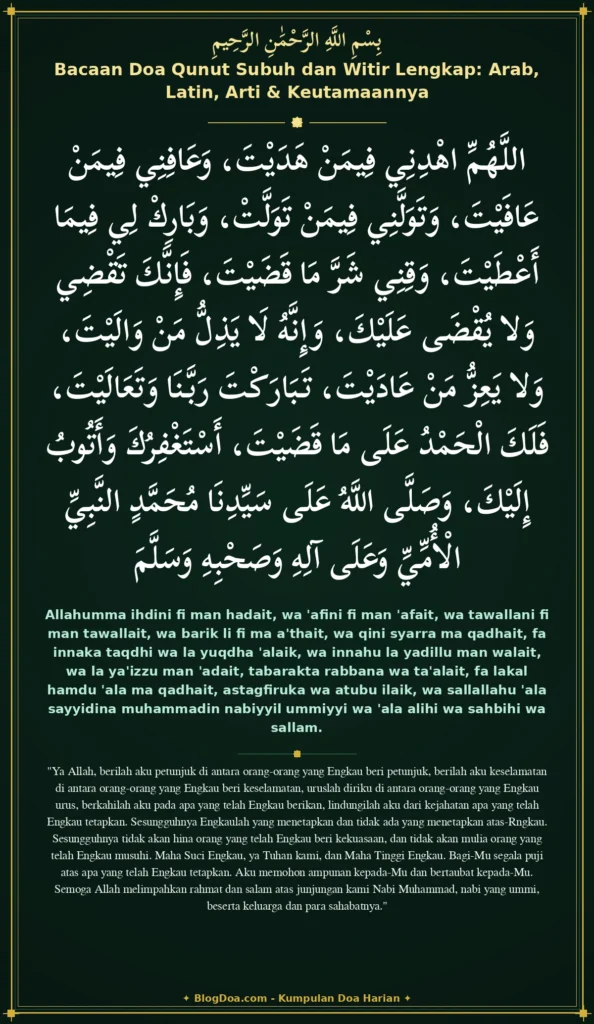 بِسْمِ اللَّهِ الرَّحْمَٰنِ الرَّحِيمِ
Bacaan Doa Qunut Subuh dan Witir Lengkap: Arab,
Latin, Arti & Keutamaannya
اللَّهُمِّ اهْدِنِي فِيمَنْ هَدَيْتَ، وَعَافِنِي فِيمَنْ
عَافَيْتَ، وَتَوَلَّنِي فِيمَنْ تَوَلَّتْ، وَبَارِكْ لِي فِيمَا
أَعْطَيْتَ، وَقِنِي شَرَّ مَا قَضَيْتَ، فَإِنَّكَ تَقْضِي
وَلا يُقْضَى عَلَيْكَ، وَإِنَّهُ لَا يَذِلُّ مَنْ وَالَيْتَ،
وَلا يَعِزُّ مَنْ عَادَيْتَ، تَبَارَكْتَ رَبَّنَا وَتَعَالَيْتَ،
فَلَكَ الْحَمْدُ عَلَى مَا قَضَيْتَ، أَسْتَغْفِرُكَ وَأَتُوبُ
إِلَيْكَ، وَصَلَّى اللَّهُ عَلَى سَيِّدِنَا مُحَمَّدٍ النَّبِيِّ
الْأُمِّيِّ وَعَلَى آلِهِ وَصَحْبِهِ وَسَلَّمَ
Allahumma ihdini fi man hadait, wa 'afini fi man 'afait, wa tawallani fi
man tawallait, wa barik li fi ma a'thait, wa qini syarra ma qadhait, fa
innaka taqdhi wa la yuqdha 'alaik, wa innahu la yadillu man walait,
wa la ya'izzu man 'adait, tabarakta rabbana wa ta'alait, fa lakal
hamdu 'ala ma qadhait, astagfiruka wa atubu ilaik, wa sallallahu 'ala
sayyidina muhammadin nabiyyil ummiyyi wa 'ala alihi wa sahbihi wa
sallam.
"Ya Allah, berilah aku petunjuk di antara orang-orang yang Engkau beri petunjuk, berilah aku keselamatan
di antara orang-orang yang Engkau beri keselamatan, uruslah diriku di antara orang-orang yang Engkau
urus, berkahilah aku pada apa yang telah Engkau berikan, lindungilah aku dari kejahatan apa yang telah
Engkau tetapkan. Sesungguhnya Engkaulah yang menetapkan dan tidak ada yang menetapkan atas-Rngkau.
Sesungguhnya tidak akan hina orang yang telah Engkau beri kekuasaan, dan tidak akan mulia orang yang
telah Engkau musuhi. Maha Suci Engkau, ya Tuhan kami, dan Maha Tinggi Engkau. Bagi-Mu segala puji
atas apa yang telah Engkau tetapkan. Aku memohon ampunan kepada-Mu dan bertaubat kepada-Mu.
Semoga Allah melimpahkan rahmat dan salam atas junjungan kami Nabi Muhammad, nabi yang ummi,
beserta keluarga dan para sahabatnya."
✦ BlogDoa.com - Kumpulan Doa Harian ✦